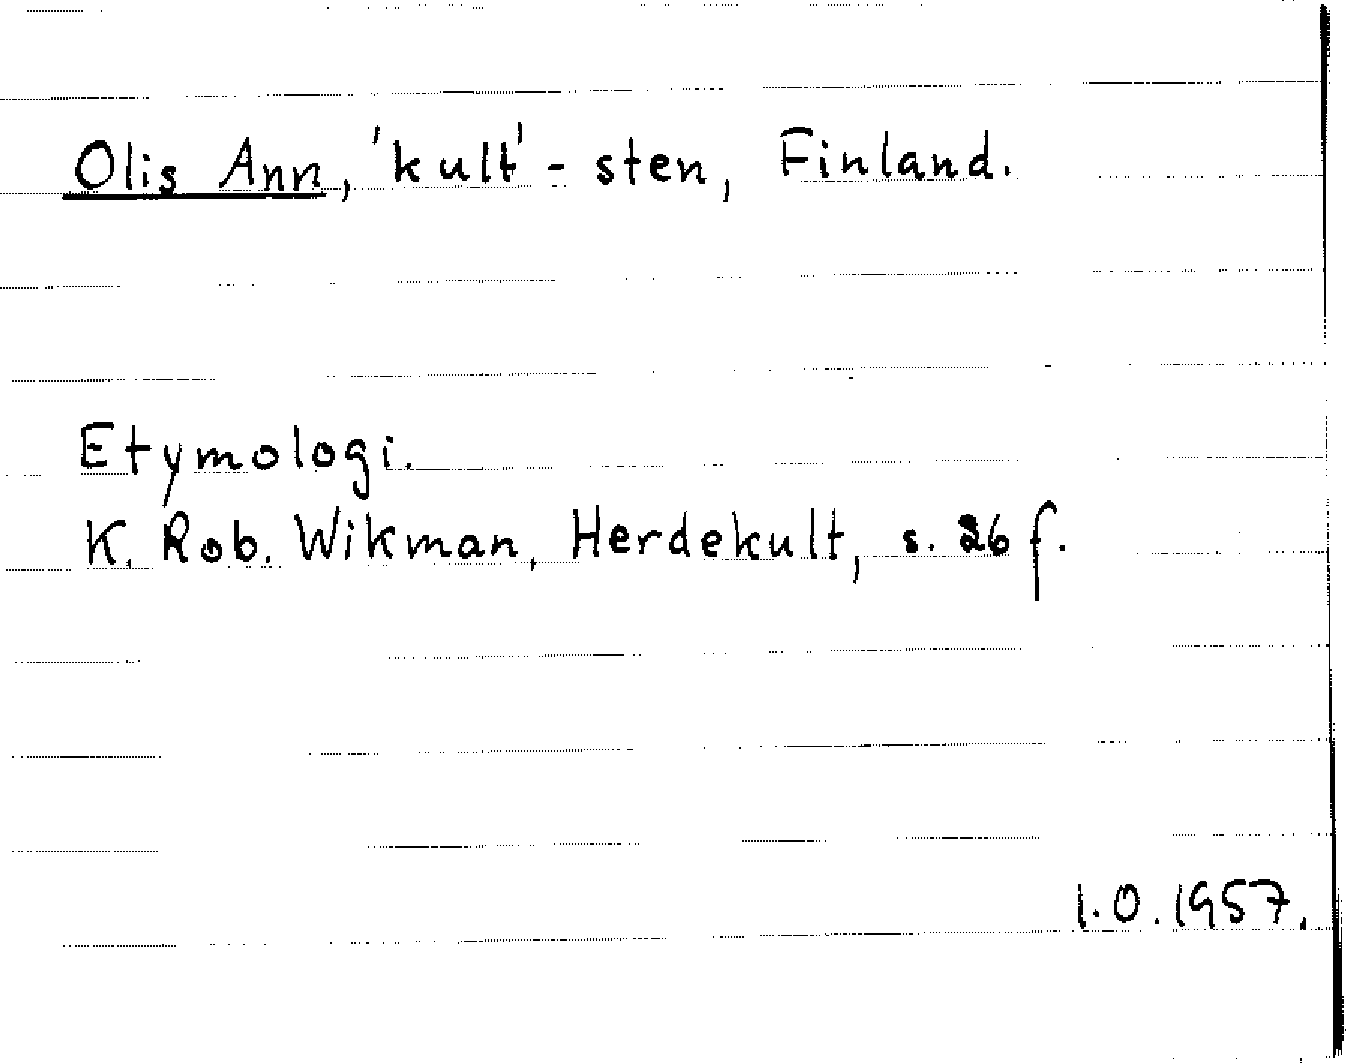 Olis Ann, 'kult' - sten, Finland.
Etymologi.
K. Rob. Wikman, Herdekult, s. 26 f.
I.O. 1957.